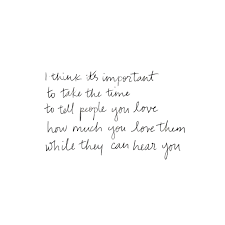 I think it's important
to take the time
to tell people you love
how much you love them
while they can hear you